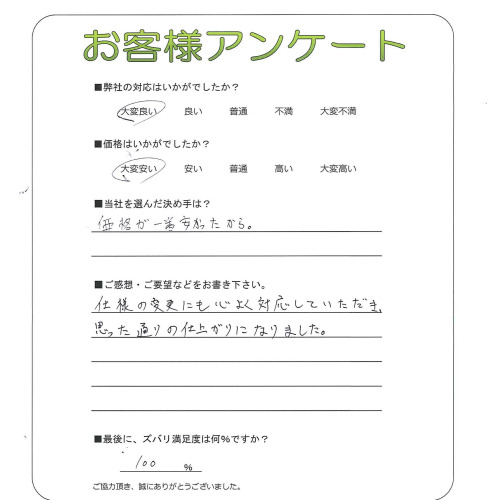 お客様アンケート
■弊社の対応はいかがでしたか？
大変良い 良い 普通 不満 大変不満
■価格はいかがでしたか？
大変安い 安い 普通 高い 大変高い
■当社を選んだ決め手は？
価格が一番安かったから。
■ご感想・ご要望などをお書き下さい。
仕様の変更にも心よく対応していただき、
思った通りの仕上がりになりました。
■最後に、ズバリ満足度は何％ですか？
100 ％
ご協力頂き、誠にありがとうございました。